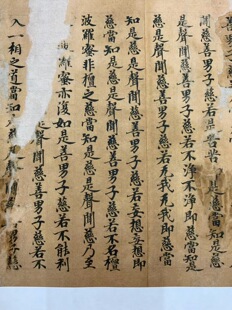 聞慈善男子慈若不淨不淨即慈當知
是慈是聲聞慈善男子慈若无我无我即慈當
知是慈是聲聞慈善男子慈若妄想妄想即
慈當知是慈是聲聞慈善男子慈若不名檀
波羅蜜非檀之慈當知是慈是聲聞慈乃至
羅蜜亦復如是善男子慈若不能利
是聲聞慈善男子慈若不
入一相之道當知